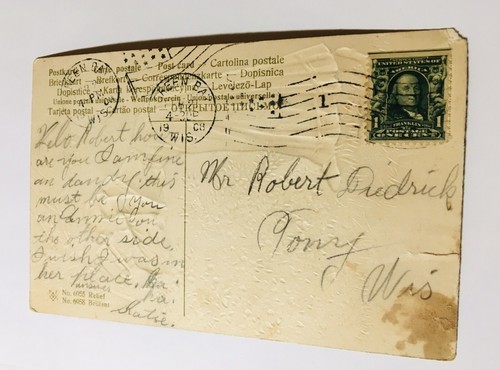 Postkarte - Carte postale - Post card - Cartolina postale
Brefkort - Correspondenzkarte - Dopisnica
Dopisnice - Levelező-Lap
Union postale universelle
Tarjeta postal - Cartão postal - ОТКРЫТОЕ ПИСЬМО
GREEN BAY
WIS.
GREEN BAY
4-
19 08
WIS.
1
UNITED STATES OF AMERICA
FRANKLIN
1 POSTAGE 1
ONE CENT
Helo Robert how
are you I am fine
an dandy, this
must be you
an Annie on
the other side.
I wish I was in
her place. Ha.
ha.
Katie.
Mr Robert Diedrick
Pony
Wis
No. 6088 Relief
No. 6088 Brillant